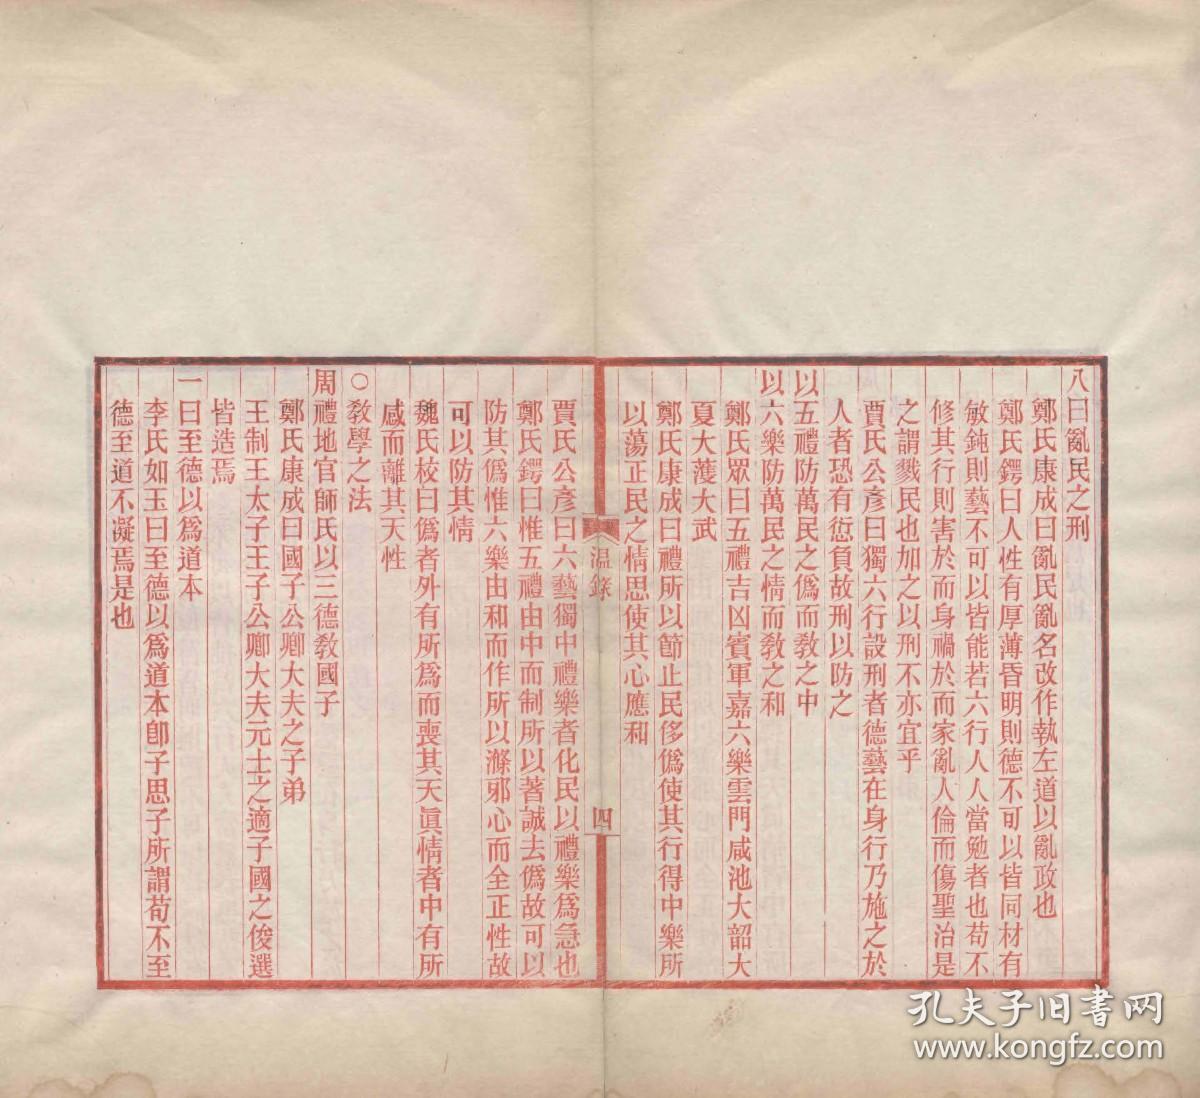 八曰亂民之刑
鄭氏康成曰亂民亂名改作執左道以亂政也
鄭氏鍔曰人性有厚薄昏明則德不可以皆同材有
敏鈍則藝不可以皆能若六行人人當勉者也苟不
修其行則害於而身禍於而家亂人倫而傷聖治是
之謂戮民也加之以刑不亦宜乎
賈氏公彥曰獨六行設刑者德藝在身行乃施之於
人者恐有愆負故刑以防之
以五禮防萬民之僞而敎之中
以六樂防萬民之情而敎之和
鄭氏眾曰五禮吉凶賓軍嘉六樂雲門咸池大韶大
夏大濩大武
鄭氏康成曰禮所以節止民侈僞使其行得中樂所
以蕩正民之情思使其心應和
溫錄
四
賈氏公彥曰六藝獨中禮樂者化民以禮樂爲急也
鄭氏鍔曰惟五禮由中而制所以著誠去僞故可以
防其僞惟六樂由和而作所以滌邪心而全正性故
可以防其情
魏氏校曰僞者外有所爲而喪其天眞情者中有所
感而離其天性
○敎學之法
周禮地官師氏以三德敎國子
鄭氏康成曰國子公卿大夫之子弟
王制王太子王子公卿大夫元士之適子國之俊選
皆造焉
一曰至德以爲道本
李氏如玉曰至德以爲道本卽子思子所謂苟不至
德至道不凝焉是也
孔夫子旧书网
www.kongfz.com